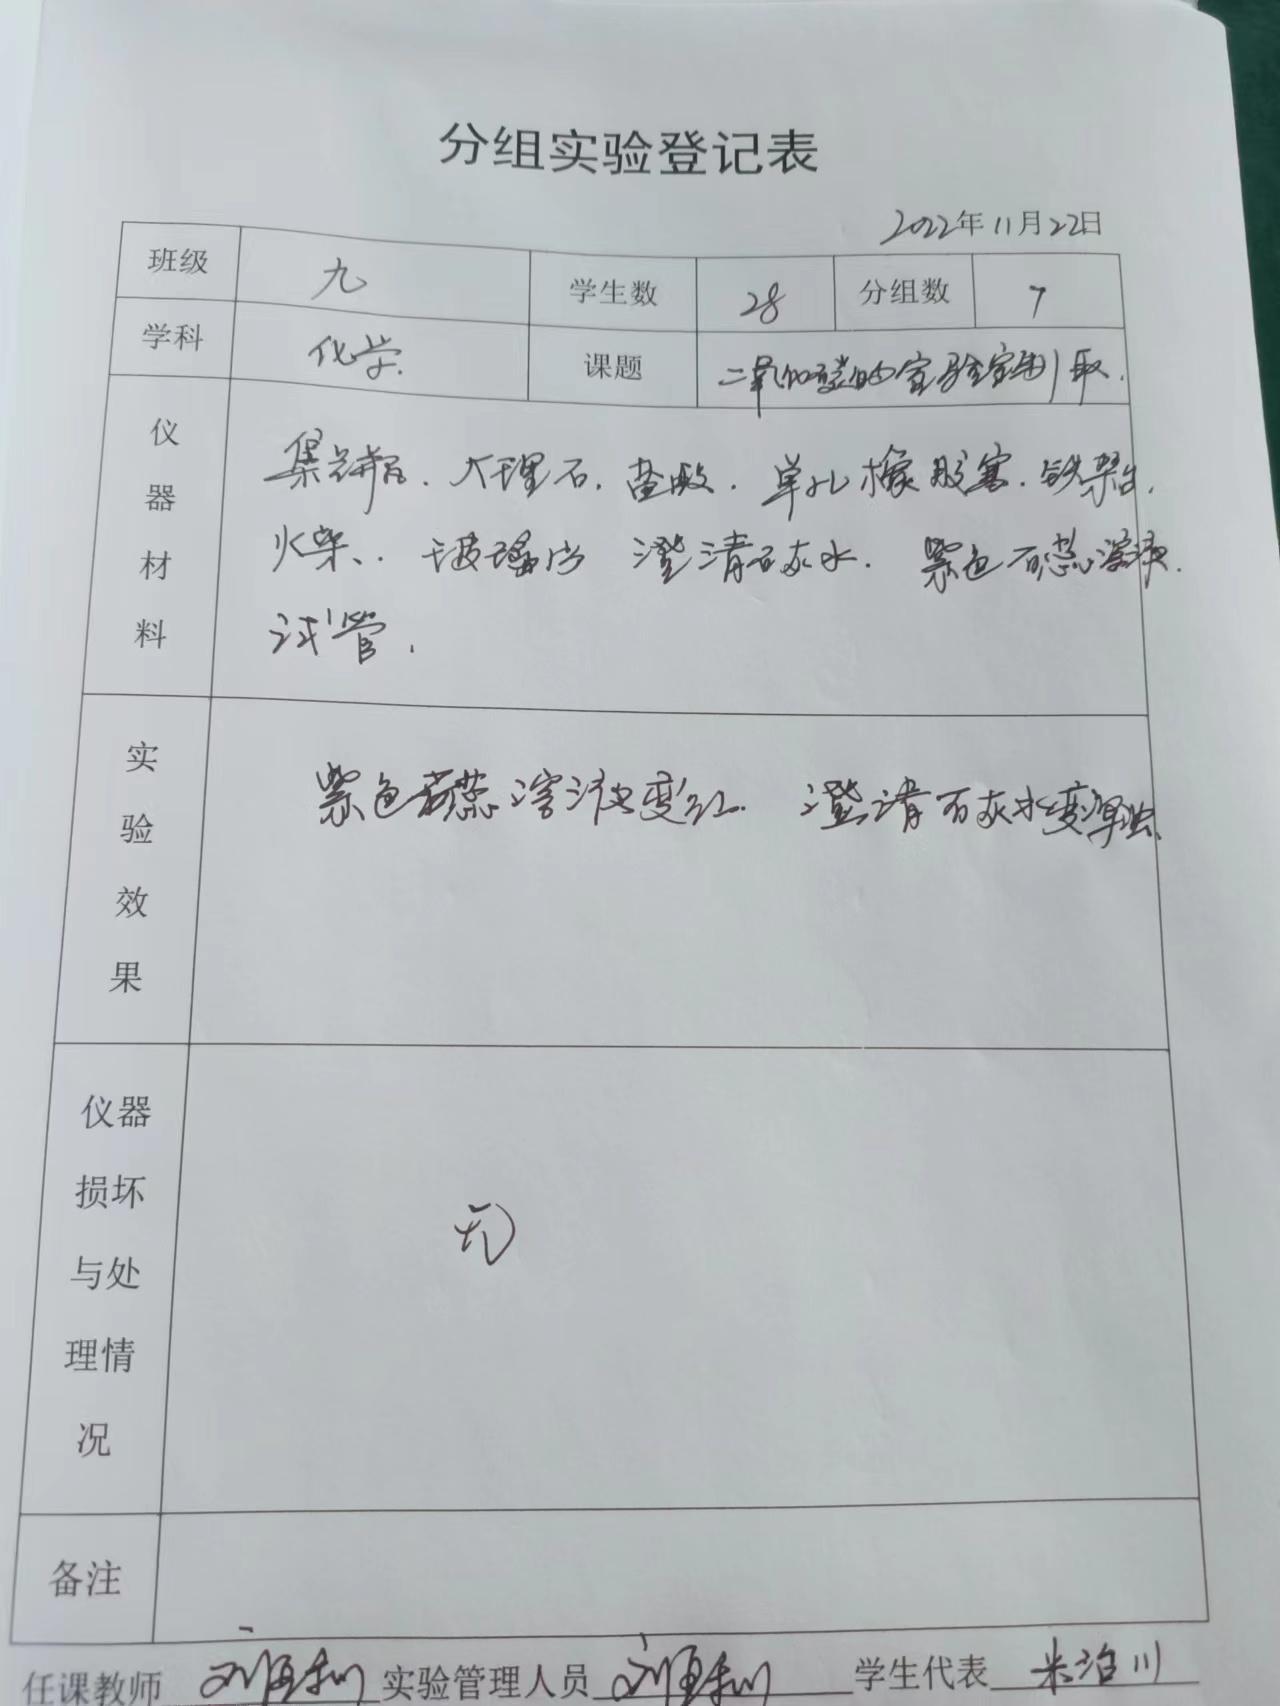 分组实验登记表
2022年11月22日
班级 九 学生数 28 分组数 7
学科 化学. 课题 二氧化碳的实验室制取.
仪器材料 集气瓶. 大理石. 盐酸. 单孔橡胶塞. 铁架台.
火柴、. 玻璃片 澄清石灰水. 紫色石蕊溶液.
试管.
实验效果 紫色石蕊溶液变红. 澄清石灰水变浑浊.
仪器损坏与处理情况 无
备注
任课教师 实验管理人员 学生代表 米治川